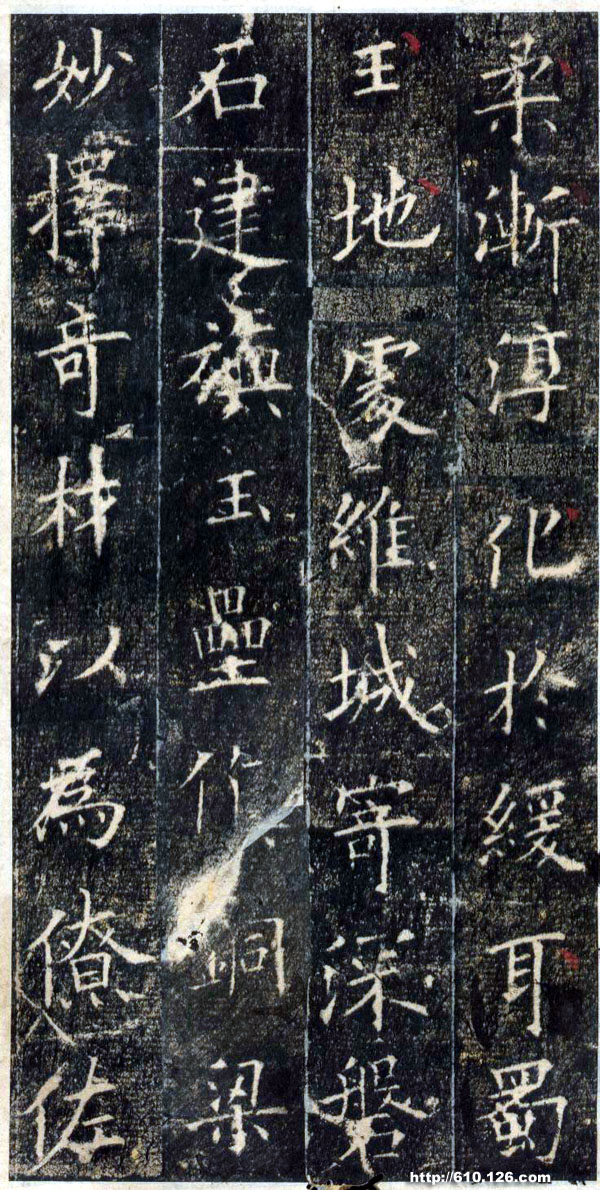 柔漸淳化於緩耳蜀
王地處維城寄深磐
石建旟玉壘作銅梁
妙擇奇材以爲僚佐
http://610.126.com